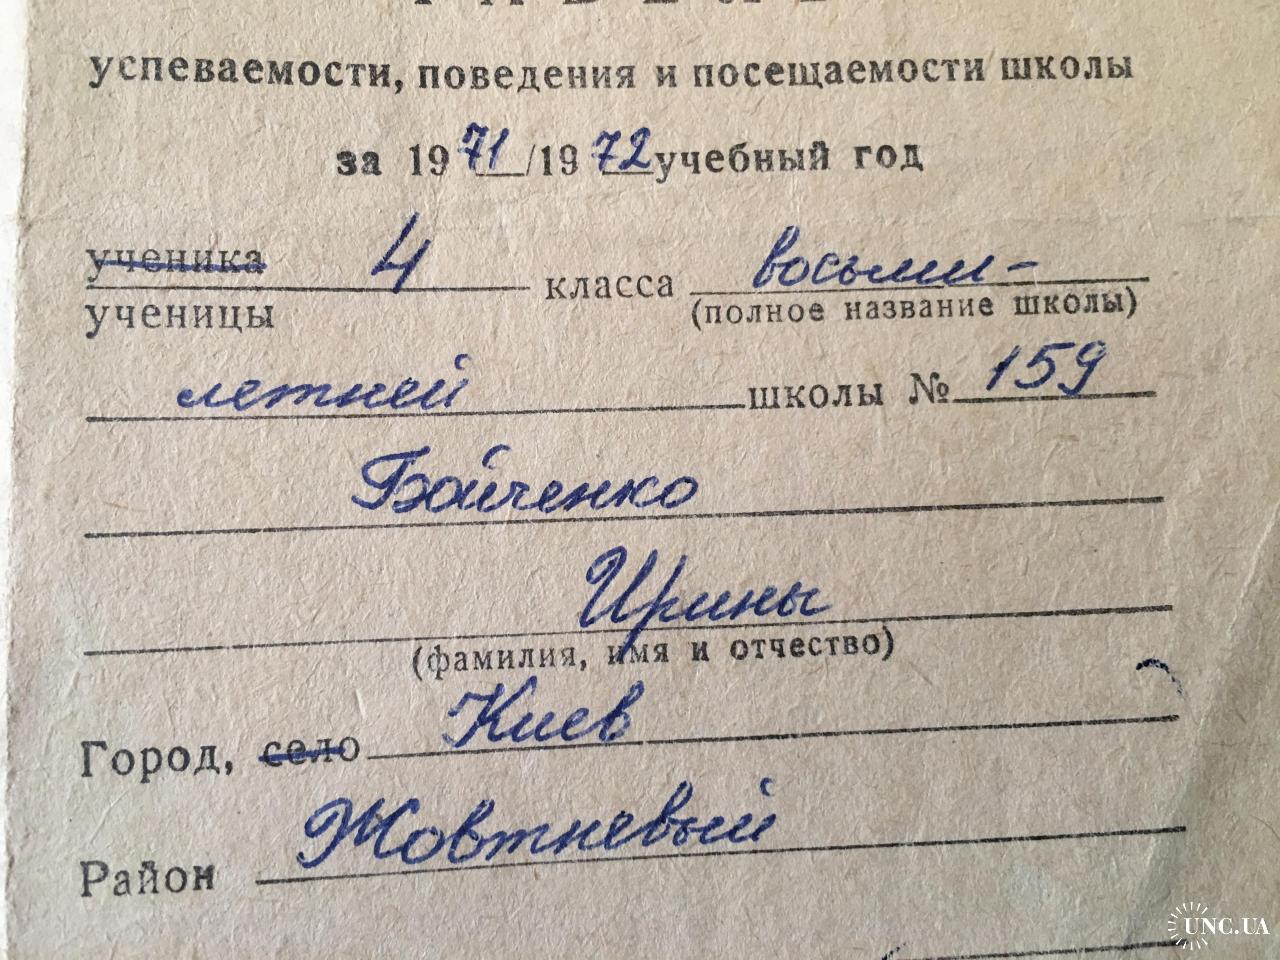 ТАБЕЛЬ
успеваемости, поведения и посещаемости школы
за 1971/1972 учебный год
ученика 4 класса восьми-
ученицы (полное название школы)
летней школы № 159
Бойченко
Ирины
(фамилия, имя и отчество)
Город, село Киев
Район Жовтневый
UNC.UA